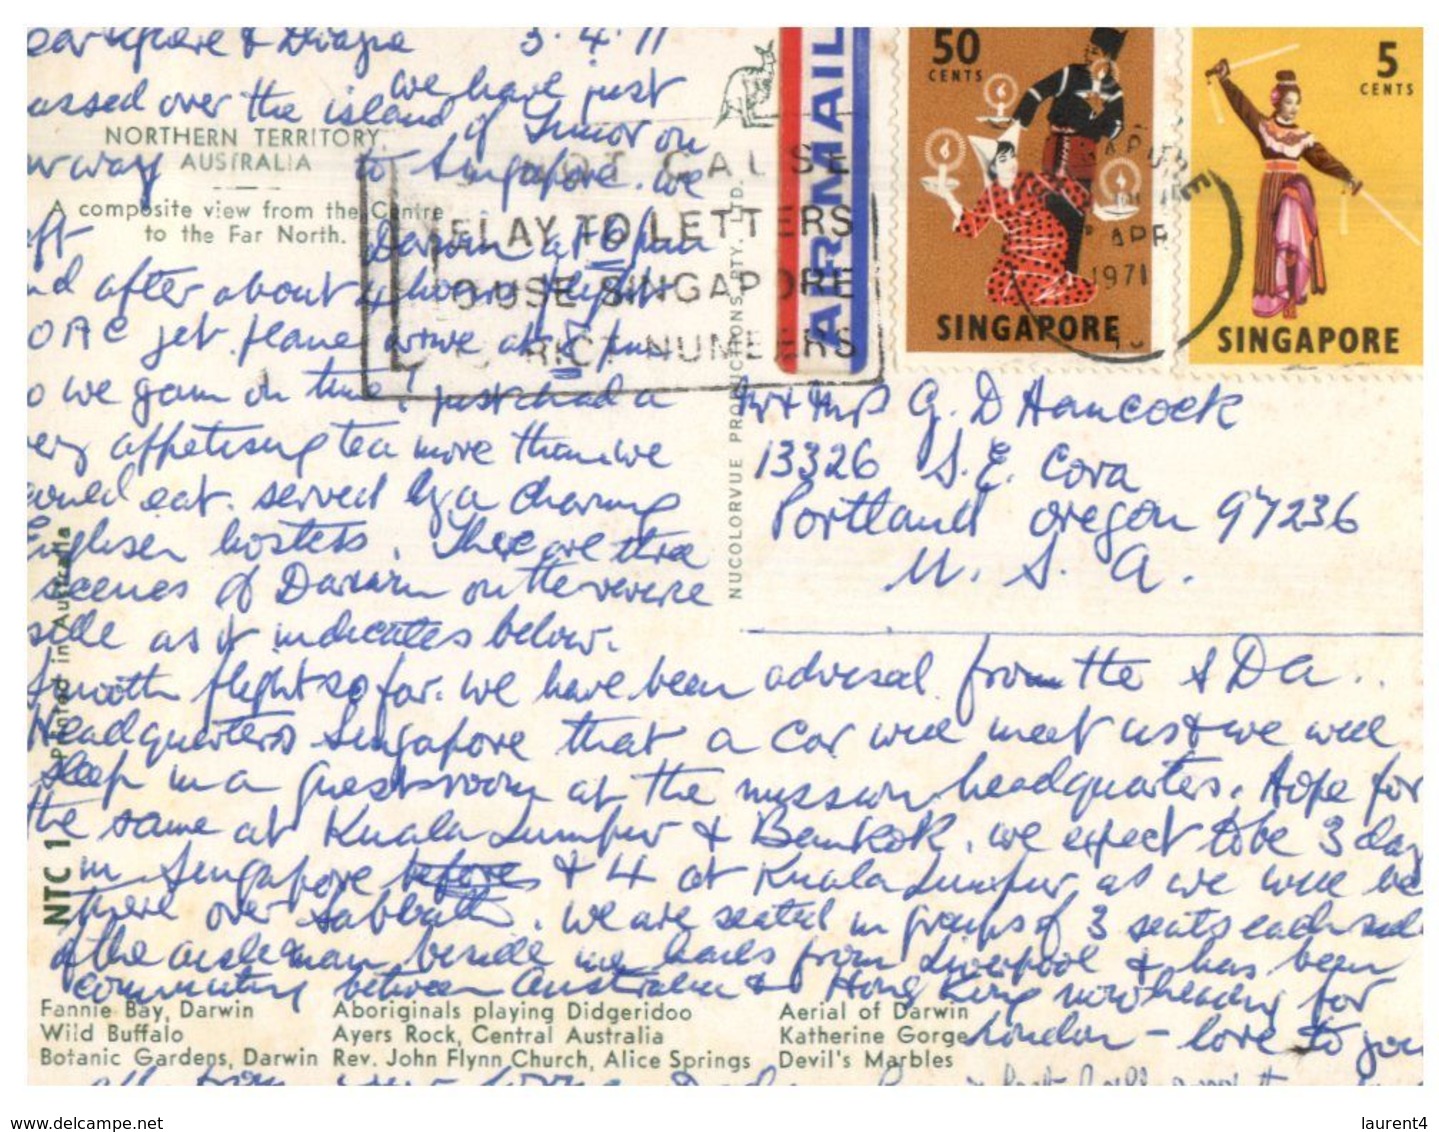 3.4.71
we have just
over the island of Timor on
to Singapore. we
Darwin at
after about 4 hours flight
jet plane arrive at 8 pm
we gain on time! just had a
appetising tea more than we
eat. served by a charming
hostess. There are three
scenes of Darwin on the reverse
side as it indicates below.
Smooth flight so far. we have been advised from the SDA..
Headquarters Singapore that a car will meet us & we will
sleep in a guestroom at the mission headquarters. Hope for
the same at Kuala Lumpur & Bankok. we expect to be 3 day
in Singapore before & 4 at Kuala Lumpur as we will be
there over Sabbath. we are seated in groups of 3 seats each side
of the aisle man beside me hails from Liverpool & has been
commuting between Australia & Hong Kong now heading for
London - love to you
NORTHERN TERRITORY,
AUSTRALIA
A composite view from the Centre
to the Far North.
NOT CAUSE
DELAY TO LETTERS
USE SINGAPORE
NUMBERS
AIR MAIL
50
CENTS
SINGAPORE
5
CENTS
SINGAPORE
APR
1971
Mr & Mrs G. D Hancock
13326 S. E. Cora
Portland Oregon 97236
U. S. A.
NUCOLORVUE PRODUCTIONS PTY. LTD.
Printed in Australia
NTC 1
Fannie Bay, Darwin
Wild Buffalo
Botanic Gardens, Darwin
Aboriginals playing Didgeridoo
Ayers Rock, Central Australia
Rev. John Flynn Church, Alice Springs
Aerial of Darwin
Katherine Gorge
Devil's Marbles
www.delcampe.net
laurent4